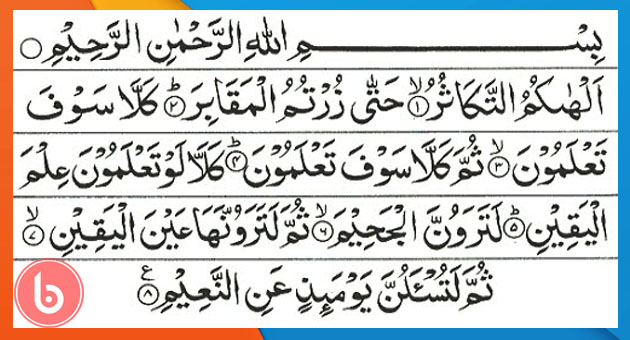 بِسْــــــــمِ اللهِ الرَّحْمٰنِ الرَّحِيْمِ ○
اَلْهٰىكُمُ التَّكَاثُرُ ۙ﴿۱﴾ حَتّٰى زُرْتُمُ الْمَقَابِرَ ؕ﴿۲﴾ كَلَّا سَوْفَ
تَعْلَمُوْنَ ۙ﴿۳﴾ ثُمَّ كَلَّا سَوْفَ تَعْلَمُوْنَ ؕ﴿۴﴾ كَلَّا لَوْ تَعْلَمُوْنَ عِلْمَ
الْيَقِيْنِ ؕ﴿۵﴾ لَتَرَوُنَّ الْجَحِيْمَ ۙ﴿۶﴾ ثُمَّ لَتَرَوُنَّهَا عَيْنَ الْيَقِيْنِ ۙ﴿۷﴾
ثُمَّ لَتُسْـَٔلُنَّ يَوْمَىِٕذٍ عَنِ النَّعِيْمِ ﴿۸﴾ ع
b